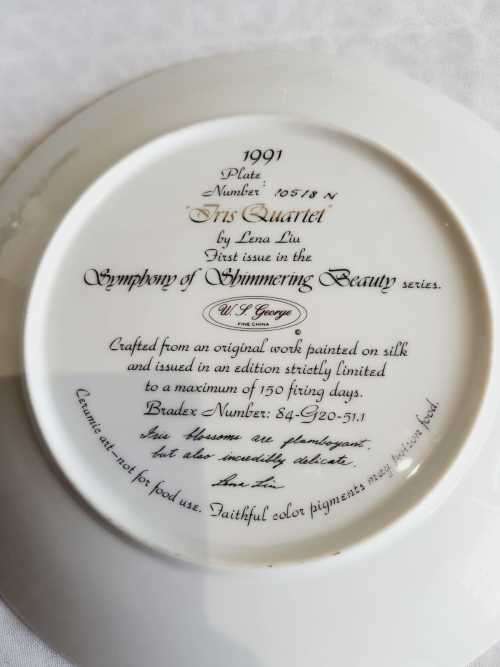 1991
Plate
Number: 10518 N
"Iris Quartet"
by Lena Liu
First issue in the
Symphony of Shimmering Beauty series.
W. S. George
FINE CHINA
©
Crafted from an original work painted on silk
and issued in an edition strictly limited
to a maximum of 150 firing days.
Bradex Number: 84-G20-51.1
Iris blossoms are flamboyant,
but also incredibly delicate.
Lena Liu
Ceramic art—not for food use. Faithful color pigments may poison food.